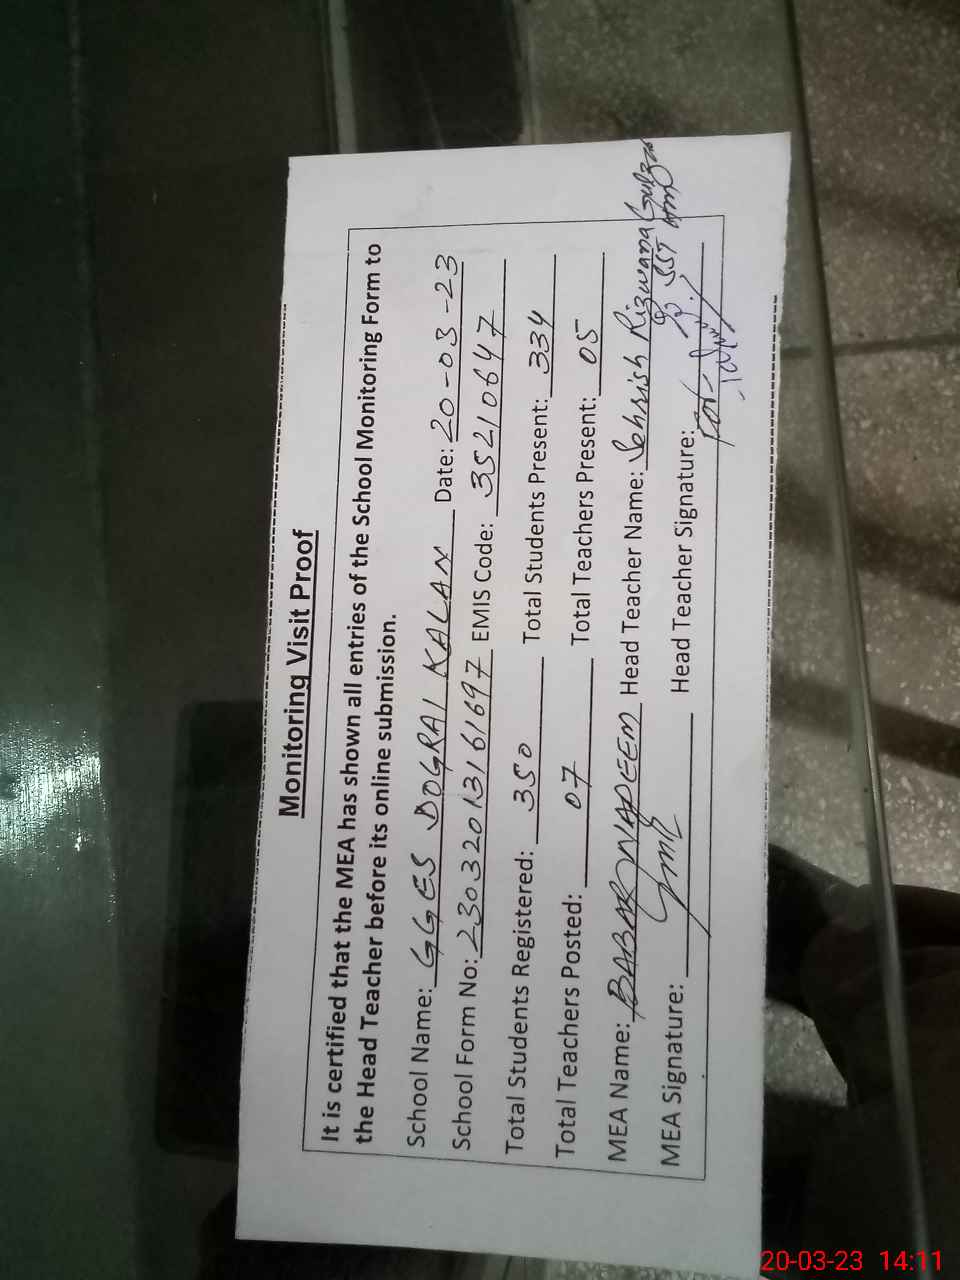 Monitoring Visit Proof
It is certified that the MEA has shown all entries of the School Monitoring Form to
the Head Teacher before its online submission.
School Name: GGES DOGRAI KALAN Date: 20-03-23
School Form No: 23032013161697 EMIS Code: 35210647
Total Students Registered: 350 Total Students Present: 334
Total Teachers Posted: 07 Total Teachers Present: 05
MEA Name: BABAR NADEEM Head Teacher Name: Sehrish Rizwana Gulzar
SST
MEA Signature: Head Teacher Signature:
20-03-23 14:11